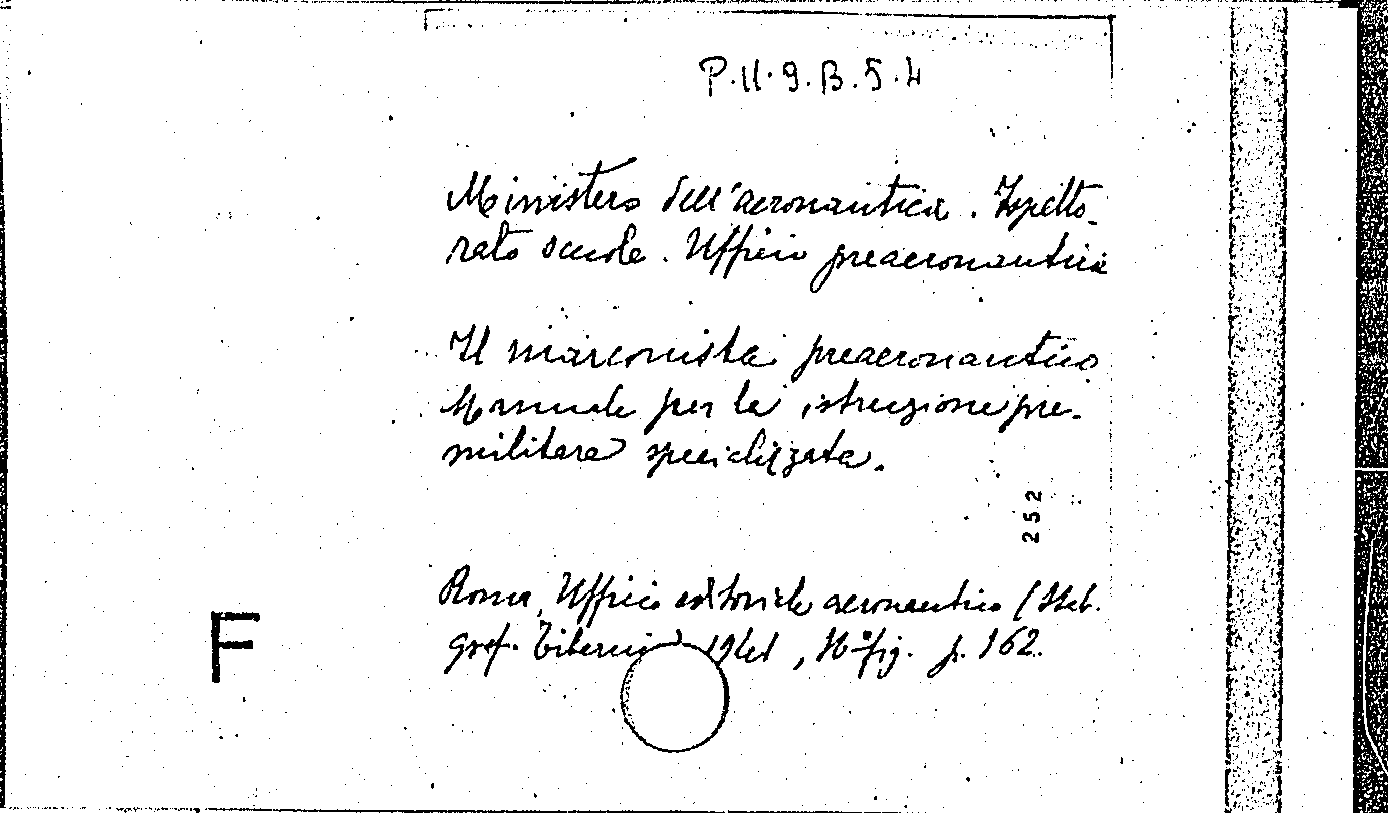 P.11.9.B.5.4
Ministero dell'aeronautica. Ispetto-
rato scuole. Ufficio preaeronautica
Il marconista preaeronautico
Manuale per la istruzione pre-
militare specializzata.
252
Roma, Ufficio editoriale aeronautico (Stab.
F
graf. Tiberino) , 16° fig. p. 162.